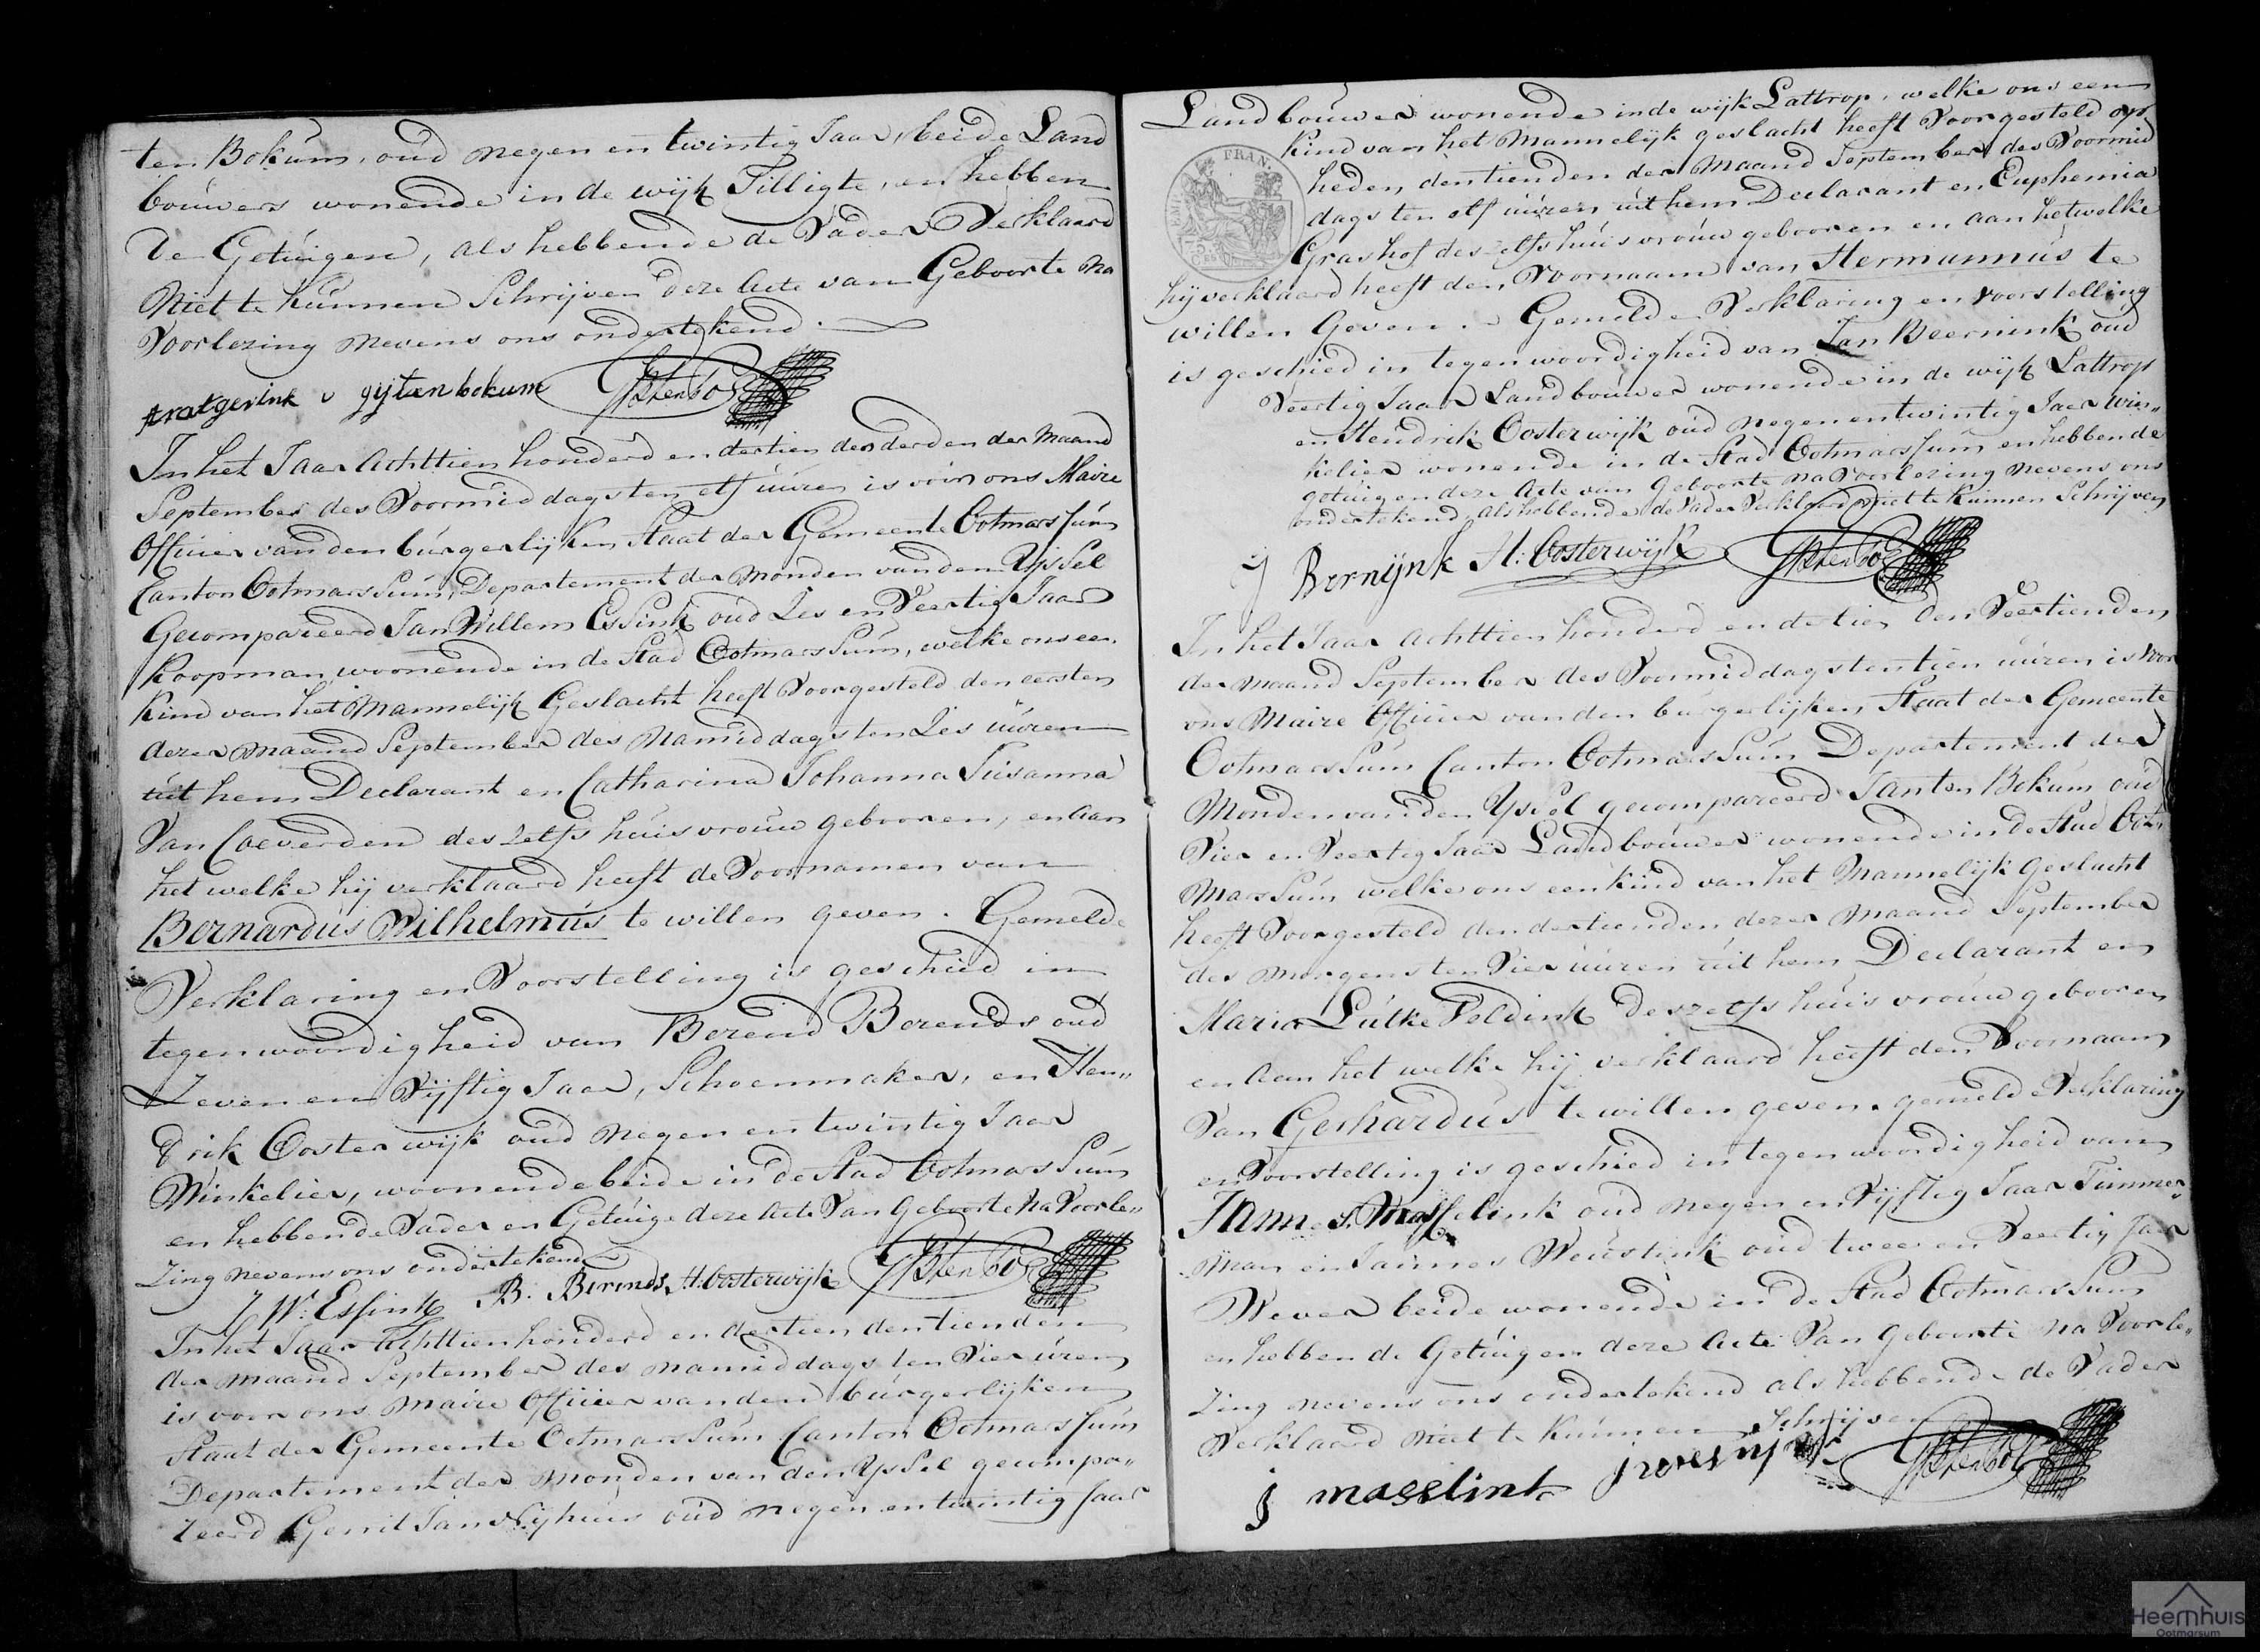 ten Bokum, oud negen en twintig Jaar, beide Land
bouwers wonende in de wijk Tilligte, en hebben
de Getuigen, als hebbende de Vader Verklaard
Niet te kunnen Schrijven deze Acte van Geboorte na
Voorlezing nevens ons ondertekend.
gytenbokum
In het Jaar Achttien honderd en dertien den derden der Maand
September des Voormiddags ten elf uuren is voor ons Maire
Officier van den burgerlijken Staat der Gemeente Ootmarssum
Canton Ootmarssum, Departement der Monden van den Yssel
Gecompareerd Jan Willem Essink oud Zes en Veertig Jaar
Koopman, woonende in de Stad Ootmarssum, welke ons een
Kind van het Mannelijk Geslacht heeft Voorgesteld den eersten
dezer maand September des Namiddags ten Zes uuren
uit hem Declarant en Catharina Johanna Susanna
Van Coeverden des zelfs huisvrouw gebooren, en aan
het welke hij verklaard heeft de Voornamen van
Bernardus Wilhelmus te willen geven. Gemelde
Verklaring en Voorstelling is geschied in
tegenwoordigheid van Berend Berends oud
Zeven en Vijftig Jaar, Schoenmaker, en Hen„
drik Oosterwijk oud negen en twintig Jaar
Winkelier, woonende beide in de Stad Ootmarssum
en hebbende Vader en Getuige deze Acte Van Geboorte Na Voorle„
zing nevens ons ondertekend
J W. Essink B. Berends H. Oosterwijk
In het Jaar Achttien honderd en dertien den tienden
der maand September des namiddags ten Vier uren
is voor ons Maire Officier van den burgerlijken
Staat der Gemeente Ootmarssum Canton Ootmarssum
Departement der Monden van den Yssel gecompa„
reerd Gerrit Jan Nijhuis oud negen en twintig Jaar
Landbouwer wonende in de wijk Lattrop, welke ons een
kind van het Mannelijk geslacht heeft Voorgesteld op
FRAN.
heden, den tienden der Maand September des Voormid
dags ten elf uuren uit hem Declarant en Euphemia
Grashof des zelfs huisvrouw gebooren en aan hetwelke
hij verklaard heeft den Voornaam van Hermannus te
willen Geven. Gemelde Verklaring en voorstelling
is geschied in tegenwoordigheid van Jan Beernink oud
Veertig Jaar Landbouwer wonende in de wijk Lattrop
en Hendrik Oosterwijk oud negen en twintig Jaar Win„
kelier wonende in de Stad Ootmarssum en hebbende
getuigen deze Acte van Geboorte na Voorlezing nevens ons
ondertekend, als hebbende de Vader Verklaard Niet te Kunnen Schrijven
J Bernijnk H. Oosterwijk
In het Jaar Achttien honderd en dertien den Veertienden
der maand September des Voormiddags ten tien uuren is voor
ons Maire Officier van den burgerlijken Staat der Gemeente
Ootmarssum Canton Ootmarssum Departement der
Monden van den Yssel gecompareerd Jan ten Bokum oud
Vier en Veertig Jaar Landbouwer wonende in de Stad Oot„
marssum welke ons een kind van het Mannelijk Geslacht
heeft Voorgesteld den dertienden dezer maand September
des morgens ten Vier uuren uit hem Declarant en
Maria Lutke Veldink deszelfs huisvrouw gebooren
en aan het welke hij verklaard heeft den Voornaam
Van Gerhardus te willen geven. gemelde Verklaring
en Voorstelling is geschied in tegenwoordigheid van
Jannes Masselink oud negen en Vijftig Jaar Timmer„
man en Jannes Weustink oud twee en Veertig Jaar
Wever beide wonende in de Stad Ootmarssum
en hebben de Getuigen deze Acte Van Geboorte na Voorle„
zing nevens ons ondertekend als hebbende de Vader
Verklaard niet te kunnen Schrijven
J masselink
Heemhuis
Ootmarsum